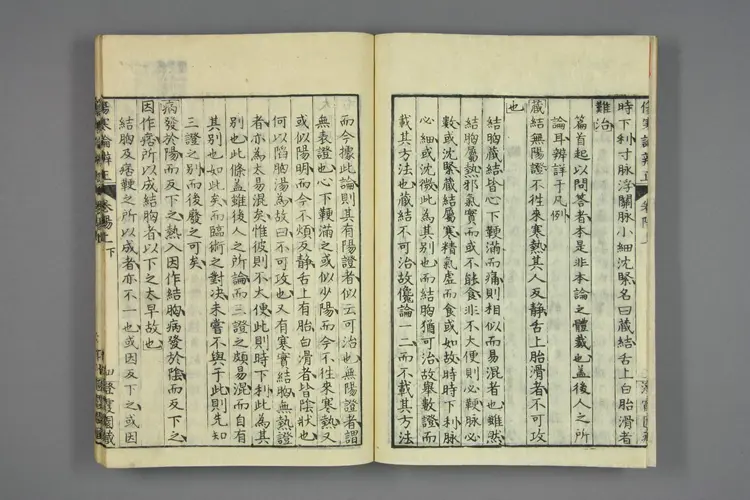 時下利寸脉浮關脉小細沈緊名曰藏結舌上白胎滑者
難治
篇首起以問答者本是非本論之體裁也蓋後人之所
論耳辨詳于凡例
藏結無陽證不往來寒熱其人反靜舌上胎滑者不可攻
也
結胸藏結皆心下鞕滿而痛則相似而易混者也雖然
結胸屬熱邪氣實而或不能食非不大便則必鞕脉必
數或沈緊藏結屬寒精氣虛而食或如故時時下利脉
必細或沈微此為其別也而結胸猶可治故舉數證而
載其方法也藏結不可治故儳論一二而不載其方法
而今據此論則其有陽證者似云可治也無陽證者謂
無表證也心下鞕滿之或似少陽而今不往來寒熱又
或似陽明而今不煩反靜舌上有胎白滑者皆陰狀也
何以陷胸湯為故曰不可攻也又有寒實結胸無熱證
者亦為太易混矣惟彼則不大便此則時下利此為其
別也此條蓋雖後人之所論而三證之頗易混而自有
其別也如此矣而臨術之對決未嘗不與于此則先知
三證之別而後廢之可矣
病發於陽而反下之熱入因作結胸病發於陰而反下之
因作痞所以成結胸者以下之太早故也
結胸及痞鞕之所以成者亦不一也或因反下之或因
傷寒論辨正
卷陽上
下